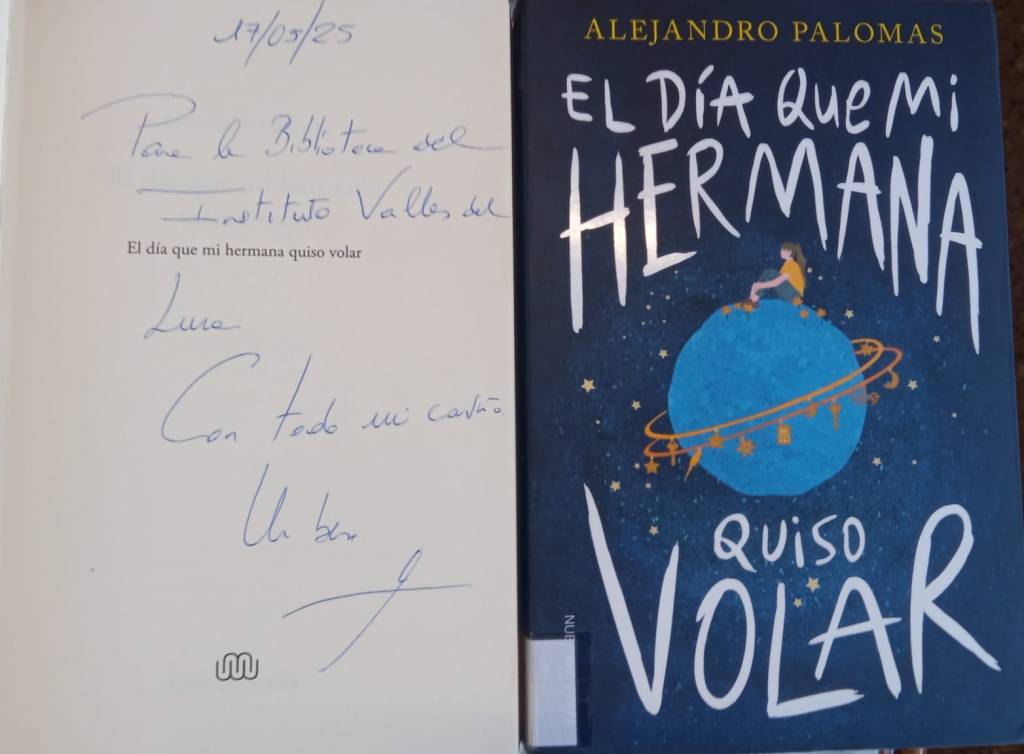 17/05/25
Para la Biblioteca del
Instituto Valles del
El día que mi hermana quiso volar
Luna
Con todo mi cariño
Un beso
ALEJANDRO PALOMAS
EL DÍA QUE MI
HERMANA
QUISO
VOLAR
NUB